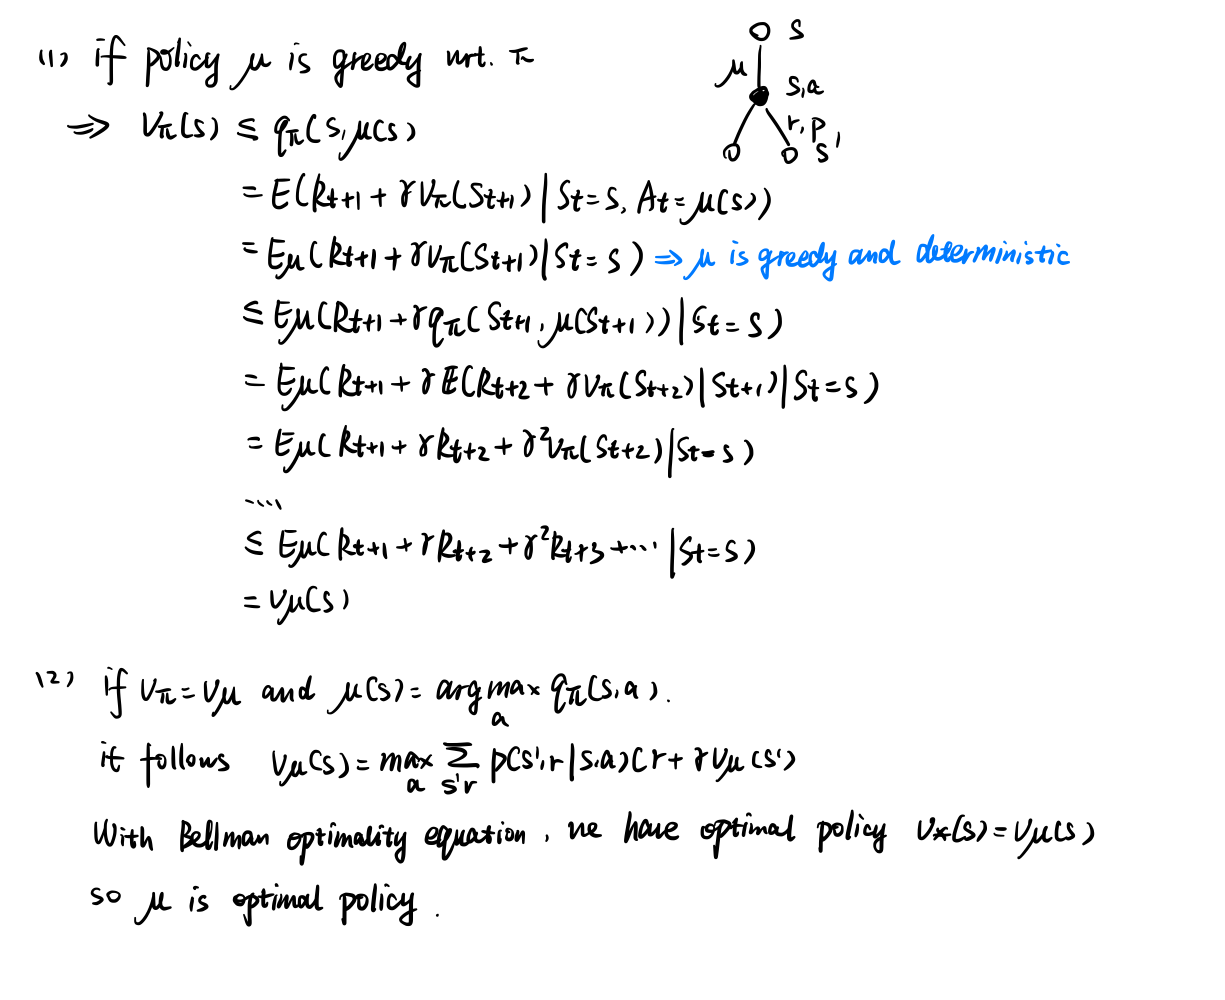 (1) if policy μ is greedy wrt. π
⇒ Vπ(s) ≤ qπ(s, μ(s)
= E(Rt+1 + γVπ(St+1) | St=s, At=μ(s))
= Eμ(Rt+1 + γVπ(St+1) | St=s) ⇒ μ is greedy and deterministic
≤ Eμ(Rt+1 + γqπ(St+1, μ(St+1)) | St=s)
= Eμ(Rt+1 + γE(Rt+2 + γVπ(St+2) | St+1) | St=s)
= Eμ(Rt+1 + γRt+2 + γ²Vπ(St+2) | St=s)
....
≤ Eμ(Rt+1 + γRt+2 + γ²Rt+3 + ... | St=s)
= Vμ(s)
s
μ
s,a
r,p
s'
(2) if Vπ=Vμ and μ(s) = argmax qπ(s,a).
a
it follows Vμ(s) = max Σ p(s',r|s,a)(r + γVμ(s')
a s'r
With Bellman optimality equation, we have optimal policy V*(s)=Vμ(s)
so μ is optimal policy.